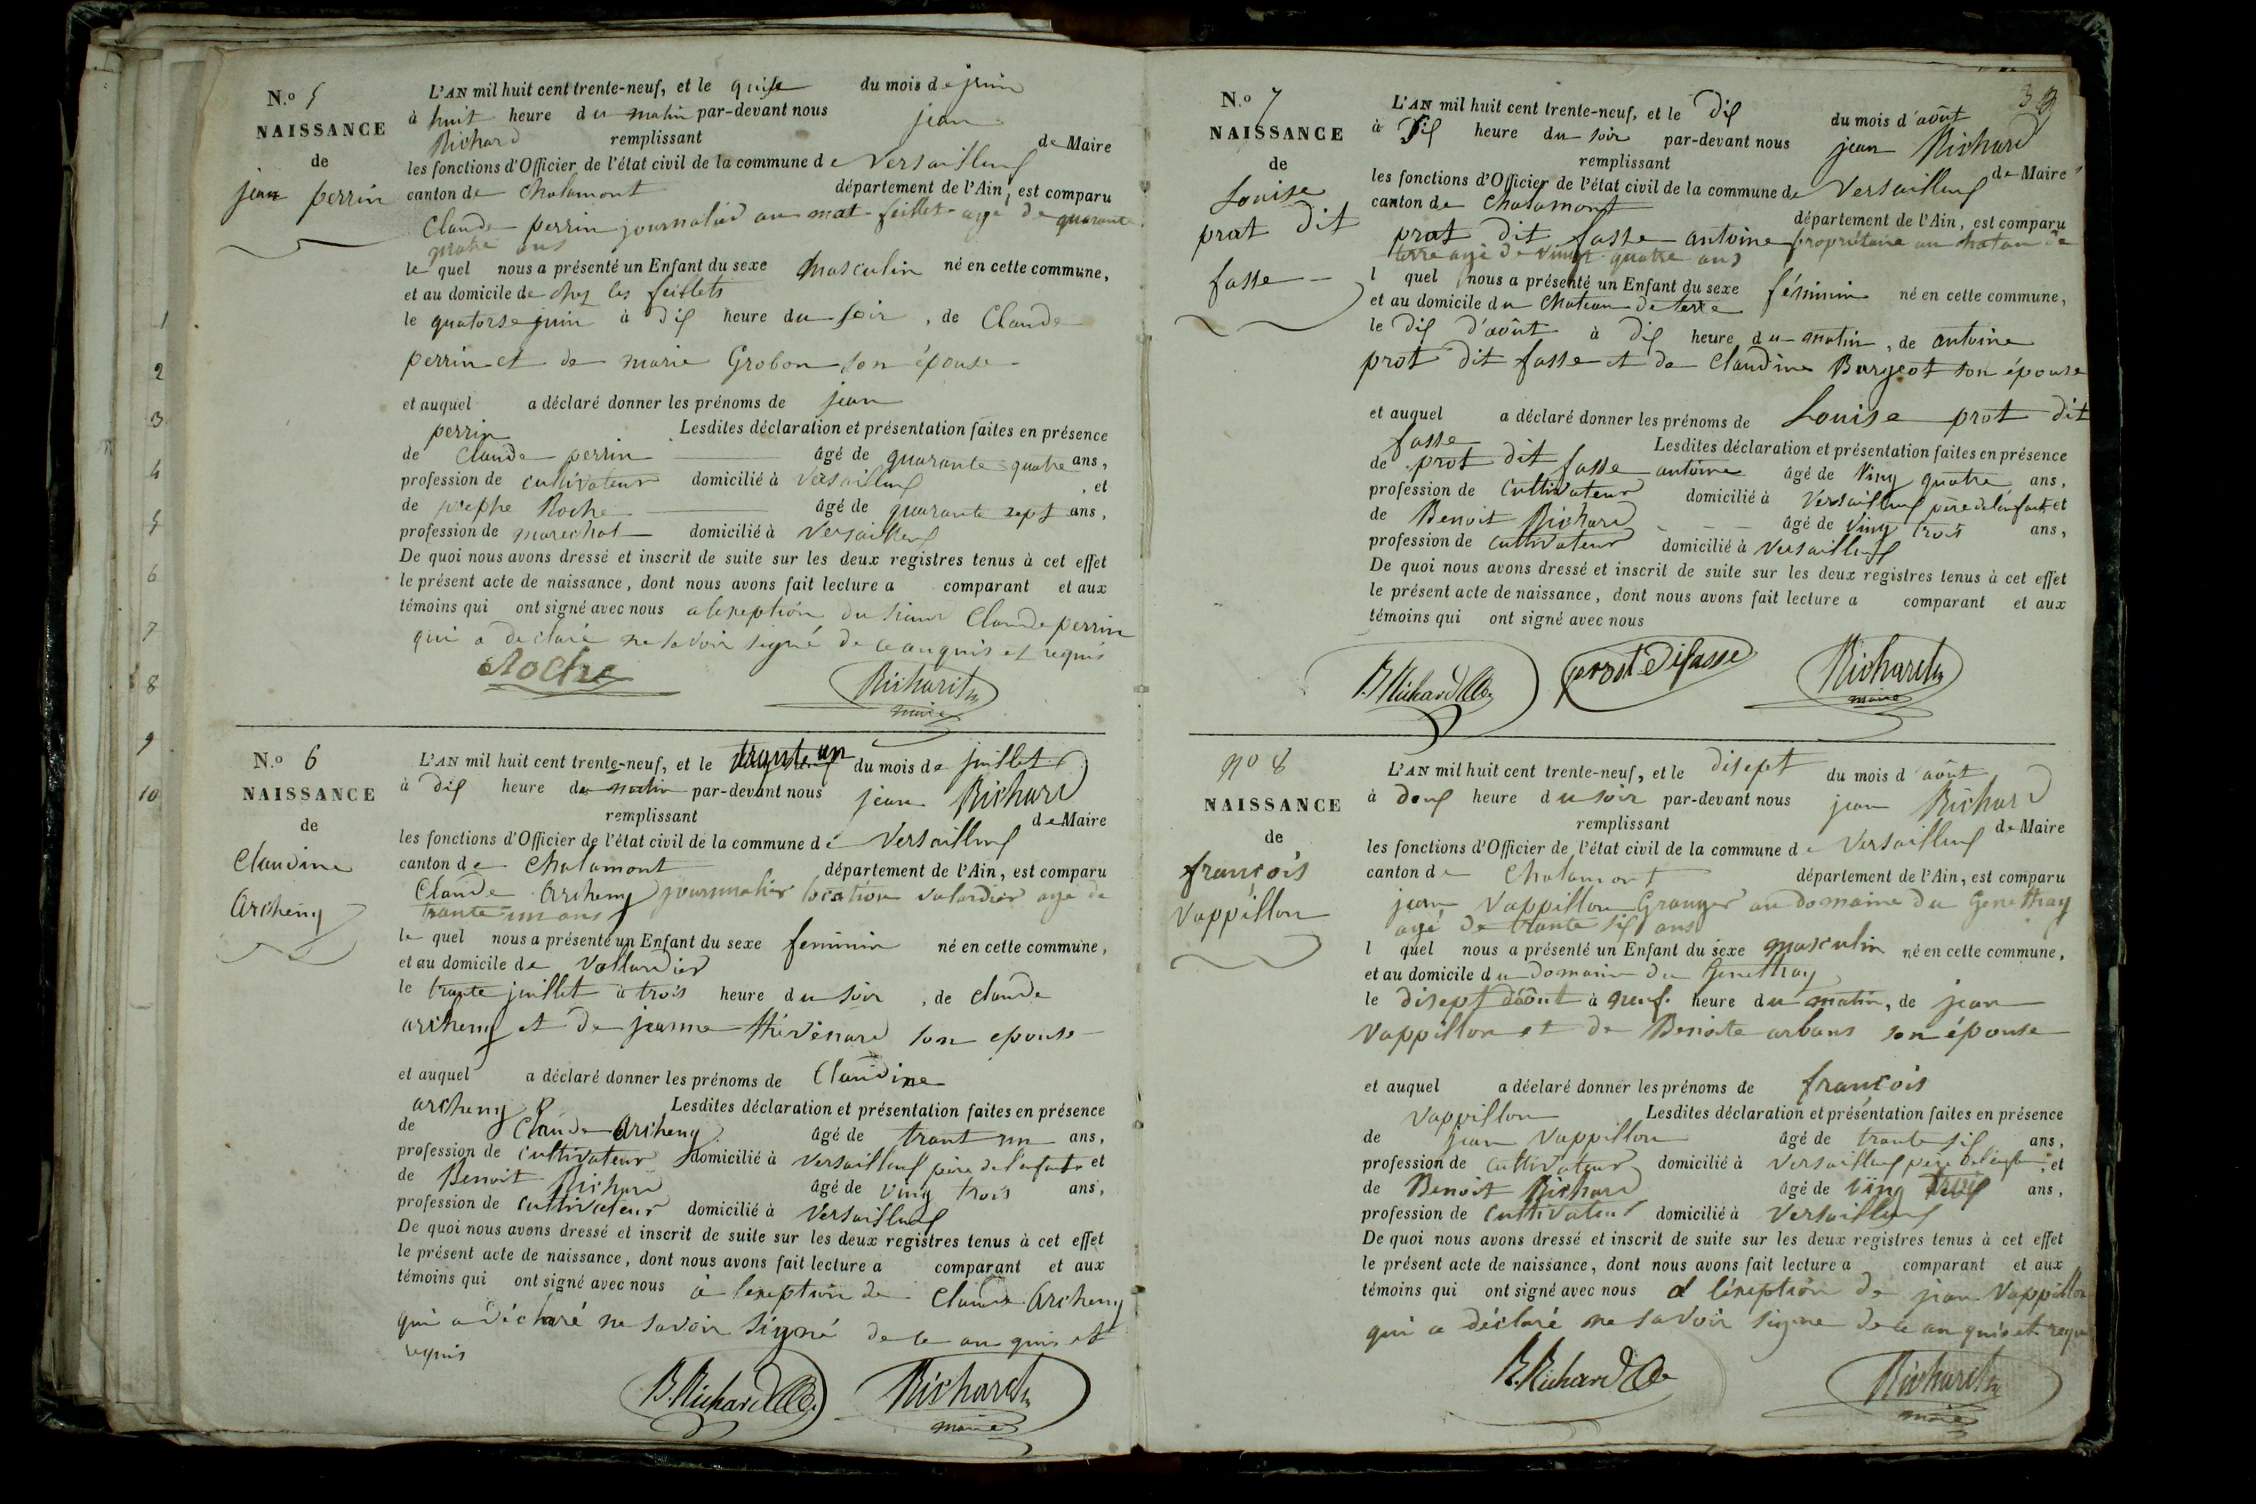 N.o 5
NAISSANCE
de
jean perrin
L'AN mil huit cent trente-neuf, et le quise du mois de juin
à huit heure du matin par-devant nous jean
Richard remplissant de Maire
les fonctions d'Officier de l'état civil de la commune de Versailleux
canton de Chalamont département de l'Ain, est comparu
Claude perrin journalié au mat feillet agé de quarante
quatre ans
le quel nous a présenté un Enfant du sexe masculin né en cette commune,
et au domicile de chez les feillets
le quatorse juin à dix heure du soir, de Claude
perrin et de marie Grobon son épouse
et auquel a déclaré donner les prénoms de jean
perrin Lesdites déclaration et présentation faites en présence
de Claude perrin âgé de quarante quatre ans,
profession de cultivateur domicilié à Versailleux, et
de josephe Roche âgé de quarante sept ans,
profession de marechal domicilié à Versailleux
De quoi nous avons dressé et inscrit de suite sur les deux registres tenus à cet effet
le présent acte de naissance, dont nous avons fait lecture a comparant et aux
témoins qui ont signé avec nous a lexeption du sieur Claude perrin
qui a declaré ne savoir signé de ce anquis et requis
Roche Richard
maire
N.o 6
NAISSANCE
de
Claudine
Archeny
L'AN mil huit cent trente-neuf, et le trante un du mois de juillet
à dix heure du matin par-devant nous jean Richard
remplissant de Maire
les fonctions d'Officier de l'état civil de la commune de Versailleux
canton de Chalamont département de l'Ain, est comparu
Claude Archeny journalier location valardier agé de
trante un ans
le quel nous a présenté un Enfant du sexe feminin né en cette commune,
et au domicile de Vallardier
le trante juillet à trois heure du soir, de claude
archeny et de jeanne thévenard son epouse
et auquel a déclaré donner les prénoms de Claudine
archeny Lesdites déclaration et présentation faites en présence
de Claude Archeny âgé de trant un ans,
profession de cultivateur domicilié à Versailleux père de l'enfant et
de Benoit Richard âgé de ving trois ans,
profession de cultivateur domicilié à Versailleux
De quoi nous avons dressé et inscrit de suite sur les deux registres tenus à cet effet
le présent acte de naissance, dont nous avons fait lecture a comparant et aux
témoins qui ont signé avec nous à lexeption de Claude Archeny
qui a déclaré ne savoir signé de ce anquis et
requis
B. Richard Richard
maire
33
N.o 7
NAISSANCE
de
Louise
prot dit
fasse
L'AN mil huit cent trente-neuf, et le dix du mois d'août
à dix heure du soir par-devant nous jean Richard
remplissant de Maire
les fonctions d'Officier de l'état civil de la commune de Versailleux
canton de Chalamont département de l'Ain, est comparu
prot dit fasse antoine propriétaire au chatau de
terre agé de vingt quatre ans
l quel nous a présenté un Enfant du sexe féminin né en cette commune,
et au domicile du chateau de terre
le dix d'août à dix heure du matin, de antoine
prot dit fasse et de Claudine Burgeot son épouse
et auquel a déclaré donner les prénoms de Louise prot dit
fasse Lesdites déclaration et présentation faites en présence
de prot dit fasse antoine âgé de Ving quatre ans,
profession de cultivateur domicilié à Versailleux père de l'enfant et
de Benoit Richard âgé de Ving trois ans,
profession de cultivateur domicilié à Versailleux
De quoi nous avons dressé et inscrit de suite sur les deux registres tenus à cet effet
le présent acte de naissance, dont nous avons fait lecture a comparant et aux
témoins qui ont signé avec nous
B Richard prost Difasse Richard
maire
no 8
NAISSANCE
de
françois
Vappillon
L'AN mil huit cent trente-neuf, et le disept du mois d'août
à doux heure du soir par-devant nous jean Richard
remplissant de Maire
les fonctions d'Officier de l'état civil de la commune de Versailleux
canton de Chalamont département de l'Ain, est comparu
jean Vappillon Granger au domaine du Genethay
agé de trante six ans
l quel nous a présenté un Enfant du sexe masculin né en cette commune,
et au domicile du domaine du Genethay
le disept d'août à neuf heure du matin, de jean
Vappillon et de Benoite arbans son épouse
et auquel a déclaré donner les prénoms de françois
Vappillon Lesdites déclaration et présentation faites en présence
de jean Vappillon âgé de trante six ans,
profession de cultivateur domicilié à Versailleux père de l'enfan, et
de Benoit Richard âgé de ving trois ans,
profession de cultivateur domicilié à Versailleux
De quoi nous avons dressé et inscrit de suite sur les deux registres tenus à cet effet
le présent acte de naissance, dont nous avons fait lecture a comparant et aux
témoins qui ont signé avec nous a léxeption de jean Vappillon
qui a déclaré ne savoir signe de ce anquis et requi
B. Richard Richard
maire
1
2
3
4
5
6
7
8
9
10